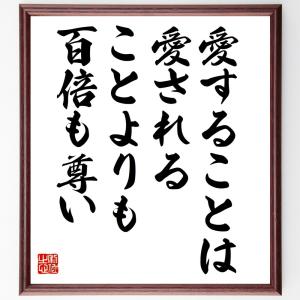 愛することは
愛される
ことよりも
百倍も尊い